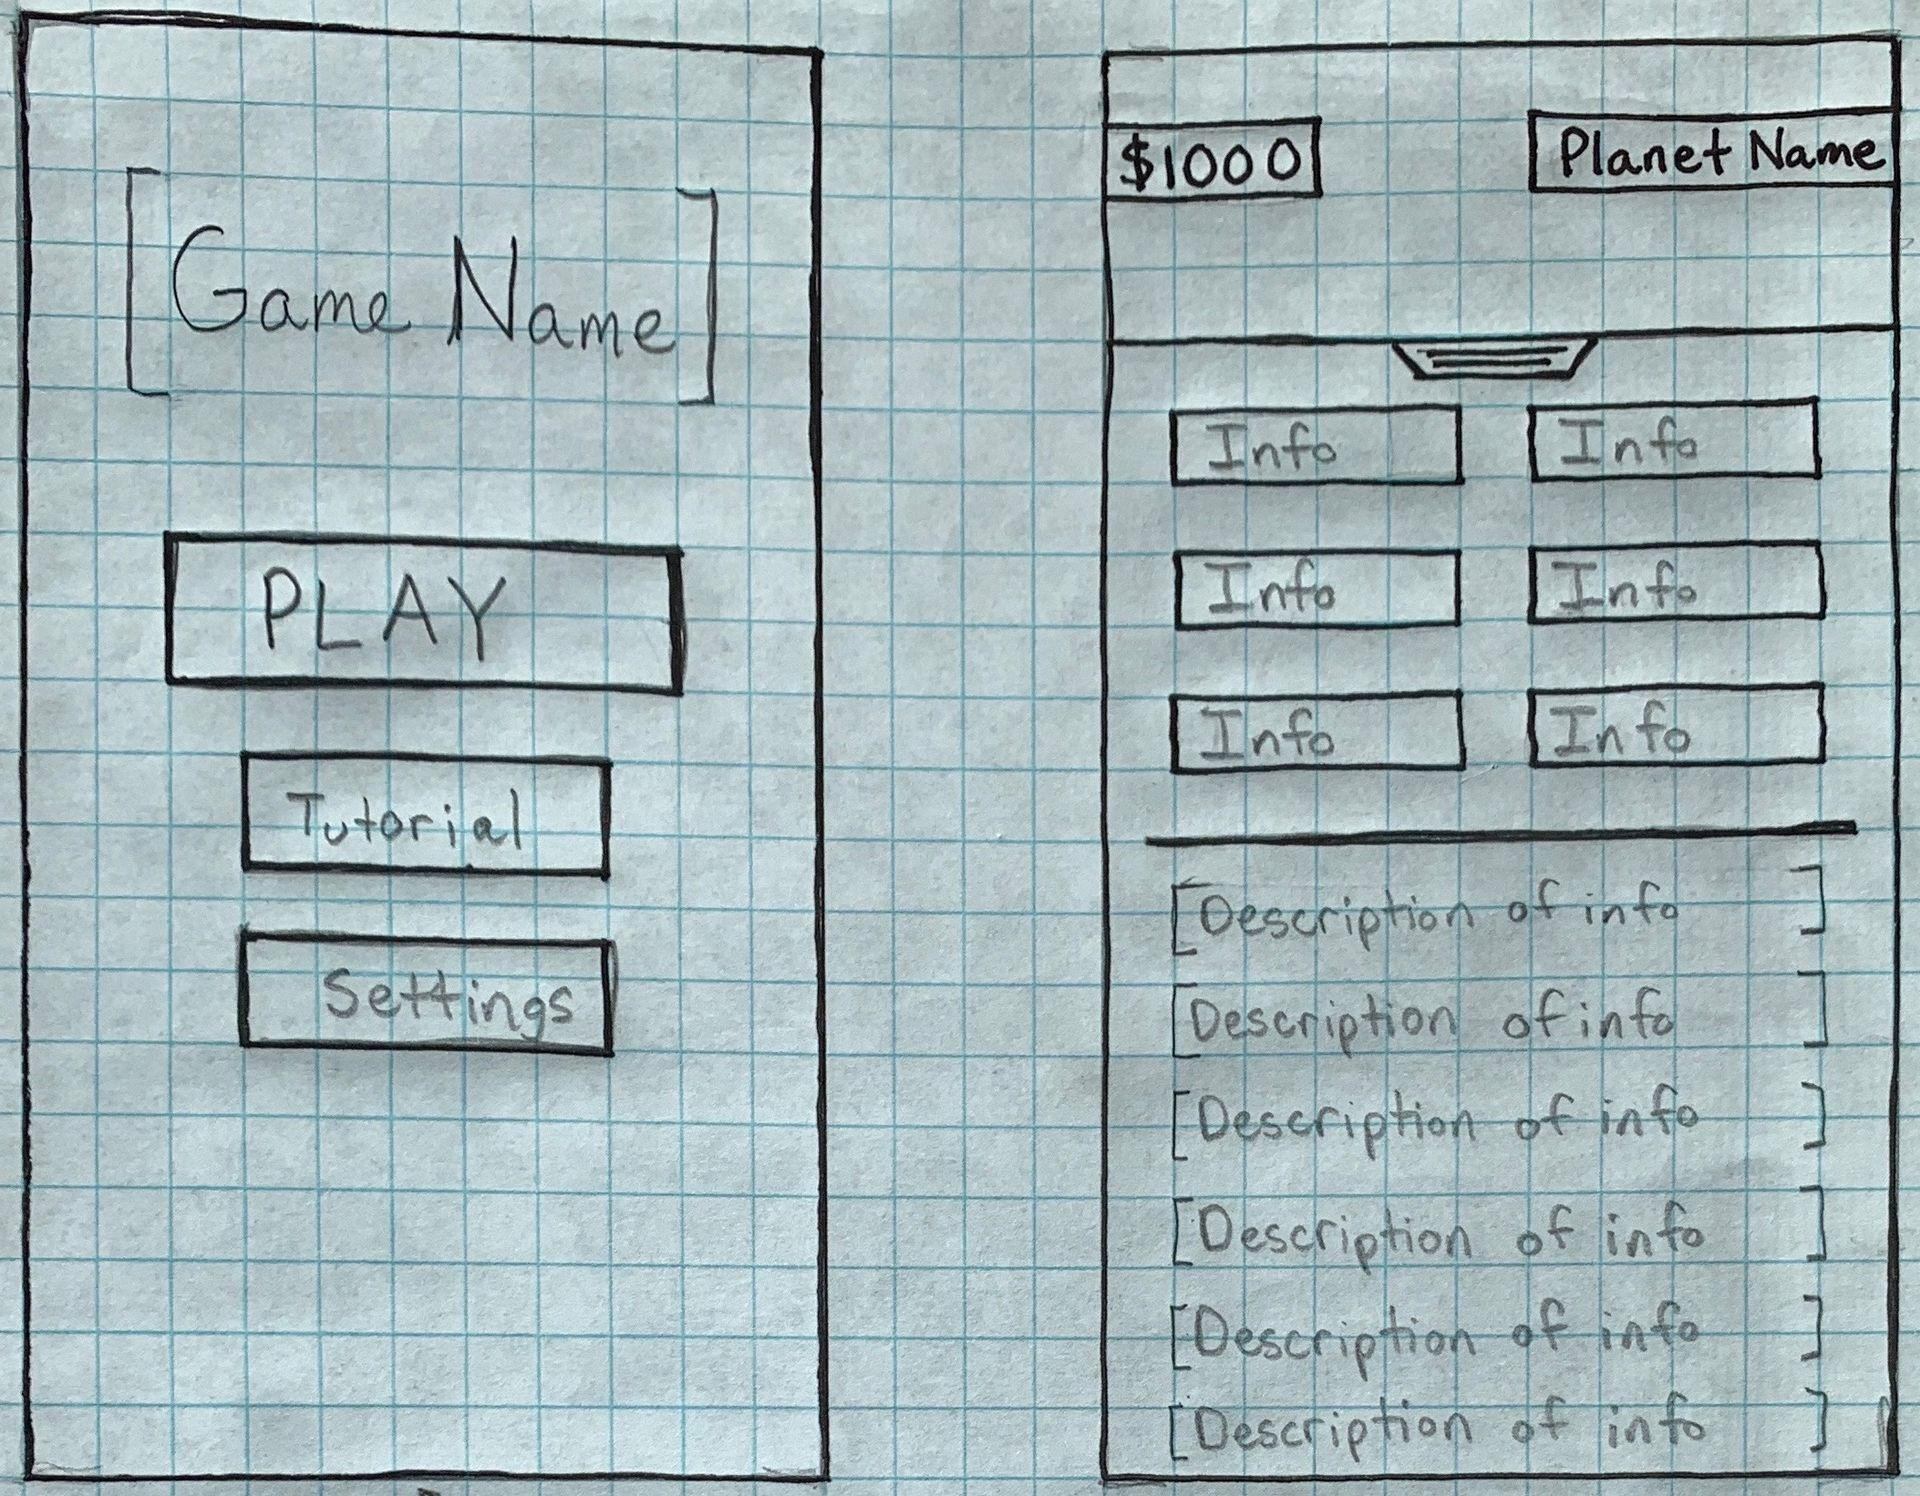 [Game Name]
PLAY
Tutorial
Settings
$1000
Planet Name
Info
Info
Info
Info
Info
Info
[Description of info]
[Description of info]
[Description of info]
[Description of info]
[Description of info]
[Description of info]